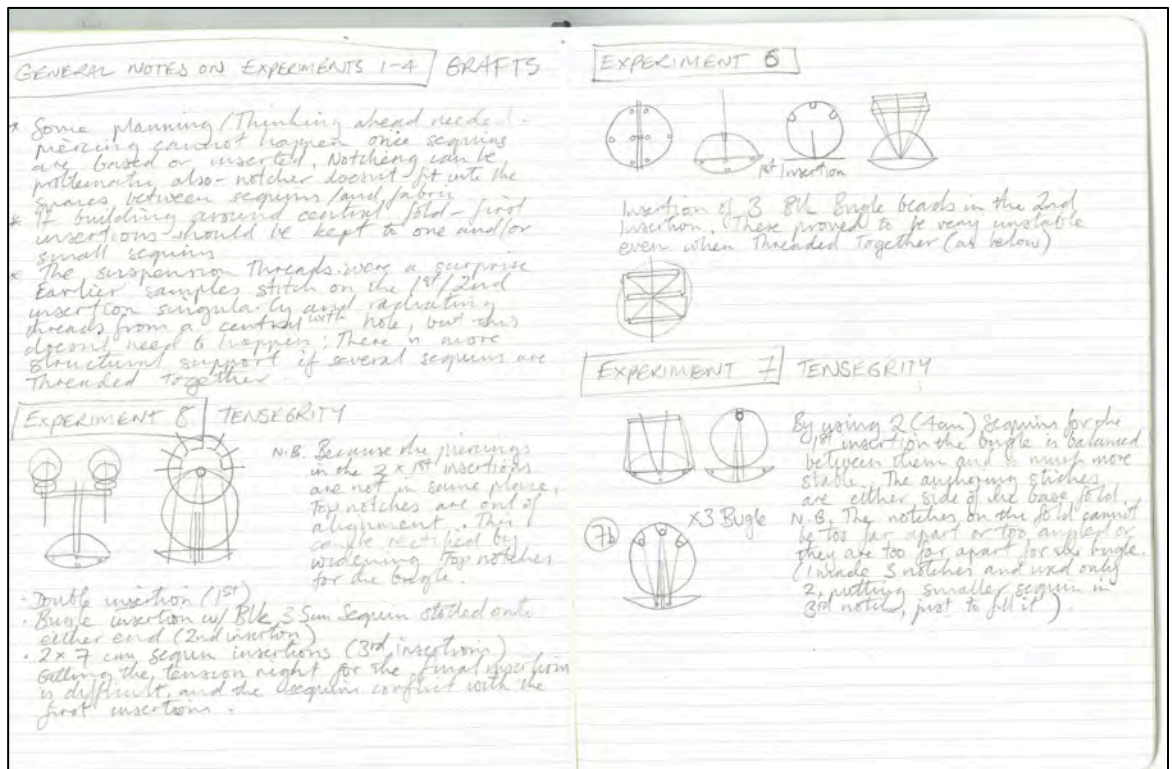 GENERAL NOTES ON EXPERIMENTS 1-4 GRAFTS
* Some planning/Thinking ahead needed -
piercing cannot happen once sequins
are based or inserted. Notching can be
problematic also - notcher doesn't fit into the
spaces between sequins/and fabric
* If building around central fold - first
insertions should be kept to one and/or
small sequins
* The suspension Threads were a surprise
Earlier samples stitch on the 1st/2nd
insertion singularly and radiating
threads from a central with hole, but this
doesn't need to happen; There is more
structural support if several sequins are
Threaded Together.
EXPERIMENT 8 TENSEGRITY
N.B. Because the piercings
in the 2 x 1st insertions
are not in same place,
Top notches are out of
alignment. This
can be rectified by
widening Top notches
for the bugle.
· Double insertion (1st)
· Bugle insertion w/ Blk 3.5mm Sequin slotted onto
either end (2nd insertion)
· 2 x 7 cm sequin insertions (3rd insertions)
Getting the tension right for the final insertion
is difficult, and the sequins conflict with the
first insertions.
EXPERIMENT 6
1st Insertion
Insertion of 3 Blk Bugle beads in the 2nd
Insertion. These proved to be very unstable
even when Threaded Together (as below)
EXPERIMENT 7 TENSEGRITY
By using 2 (4cm) Sequins for the
1st insertion the bugle is balanced
between them and is much more
stable. The anchoring stitches
are either side of the base fold.
7b x3 Bugle
N.B. The notches on the fold cannot
be too far apart or too angled or
they are too far apart for the bugle.
(I made 3 notches and used only
2, putting smaller sequin in
3rd notch, just to fill it).